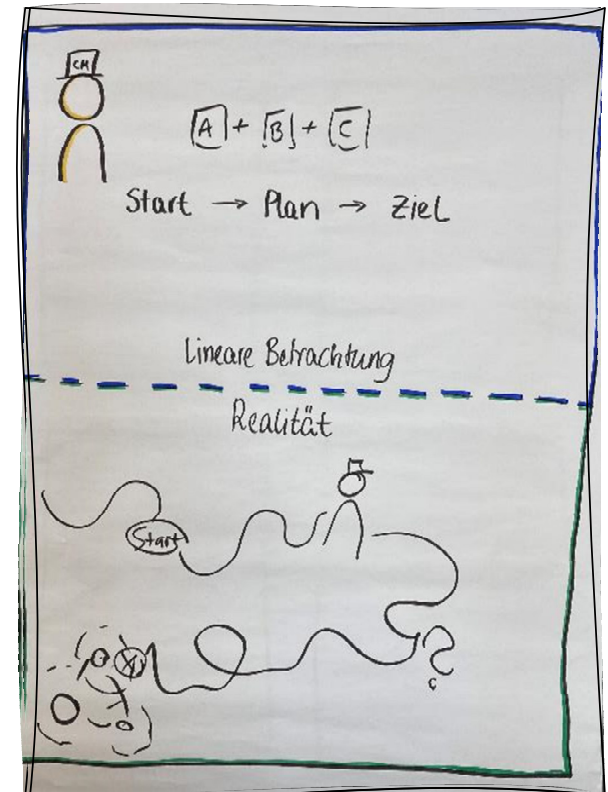 CM
A + B + C
Start → Plan → Ziel
Lineare Betrachtung
Realität
Start
?